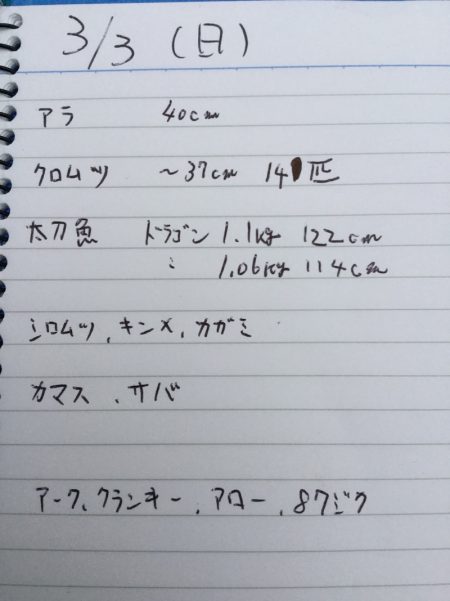 3/3 (日)
アラ 40cm
クロムツ ~37cm 14匹
太刀魚 ドラゴン 1.1kg 122cm
〃 1.06kg 114cm
シロムツ、キンメ、カガミ
カマス、サバ
アーク、クランキー、アロー、87ジグ